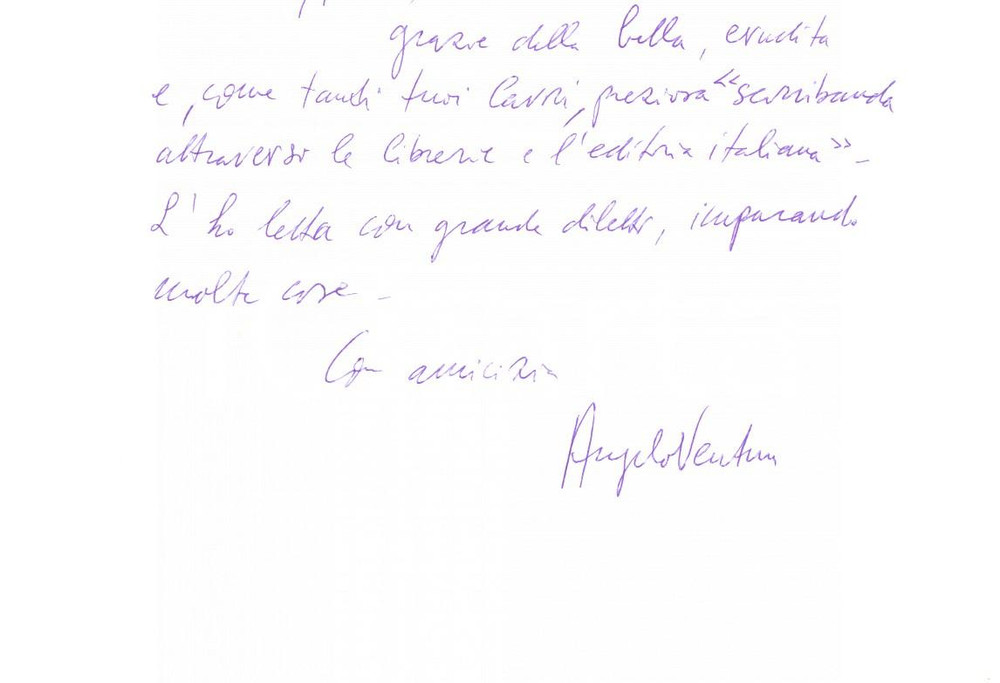 grazie della bella, erudita
e, come tanti tuoi lavori, preziosa «scorribanda
attraverso le librerie e l'editoria italiana».
L'ho letta con grande diletto, imparando
molte cose.
Con amicizia
Angelo Ventura